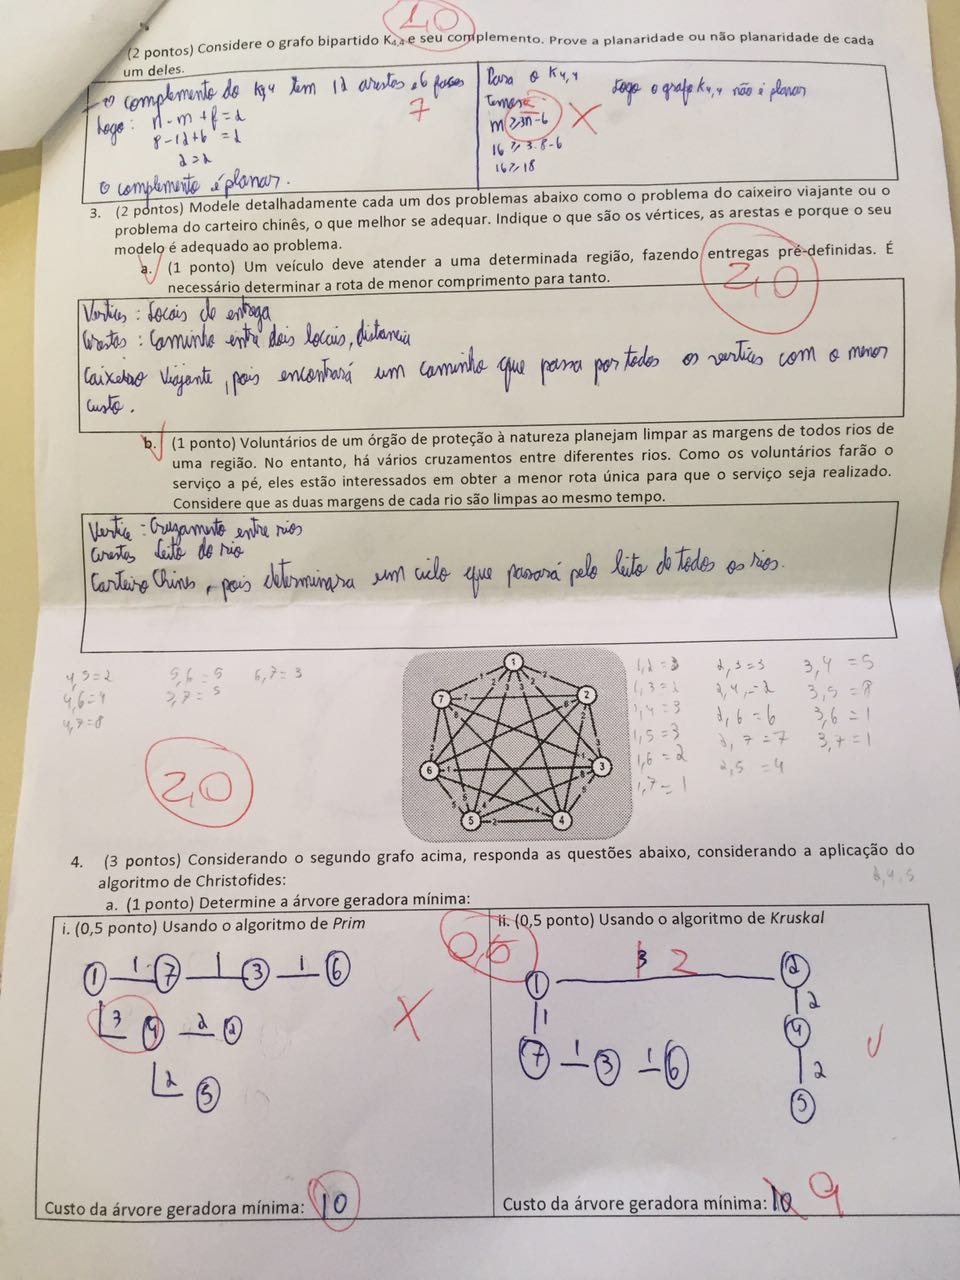 1,0
(2 pontos) Considere o grafo bipartido K4,4 e seu complemento. Prove a planaridade ou não planaridade de cada
um deles.
o complemento do K4,4 tem 12 arestas e 6 faces
Logo: n - m + f = 2
8 - 12 + 6 = 2
2 = 2
O complemento é planar.
?
Para o K4,4
temos
m ≥ 3n - 6
16 ≥ 3.8 - 6
16 ≥ 18
Logo o grafo K4,4 não é planar
3. (2 pontos) Modele detalhadamente cada um dos problemas abaixo como o problema do caixeiro viajante ou o
problema do carteiro chinês, o que melhor se adequar. Indique o que são os vértices, as arestas e porque o seu
modelo é adequado ao problema.
a. (1 ponto) Um veículo deve atender a uma determinada região, fazendo entregas pré-definidas. É
necessário determinar a rota de menor comprimento para tanto.
2,0
Vertices: Locais de entrega
Arestas: Caminho entre dois locais, distancia
Caixeiro Viajante, pois encontrará um caminho que passa por todos os vertices com o menor
custo.
b. (1 ponto) Voluntários de um órgão de proteção à natureza planejam limpar as margens de todos rios de
uma região. No entanto, há vários cruzamentos entre diferentes rios. Como os voluntários farão o
serviço a pé, eles estão interessados em obter a menor rota única para que o serviço seja realizado.
Considere que as duas margens de cada rio são limpas ao mesmo tempo.
Vertice: Cruzamento entre rios
Arestas leito do rio
Carteiro Chines, pois determinara um ciclo que passará pelo leito de todos os rios.
4,5=2 5,6=5 6,7=3
4,6=4 5,7=5
4,7=8
2,0
1
2
3
4
5
6
7
1,2=3 2,3=3 3,4=5
1,3=2 2,4,=2 3,5=8
1,4=3 2,6=6 3,6=1
1,5=3 2,7=7 3,7=1
1,6=2 2,5=4
1,7=1
4. (3 pontos) Considerando o segundo grafo acima, responda as questões abaixo, considerando a aplicação do
algoritmo de Christofides:
2,4,5
a. (1 ponto) Determine a árvore geradora mínima:
i. (0,5 ponto) Usando o algoritmo de Prim
1 1 7 1 3 1 6
3 4 2 2
2 5
Custo da árvore geradora mínima: 10
0,5
ii. (0,5 ponto) Usando o algoritmo de Kruskal
1 3 2 2
1 2
7 1 3 1 6 4
2
5
Custo da árvore geradora mínima: 10 9